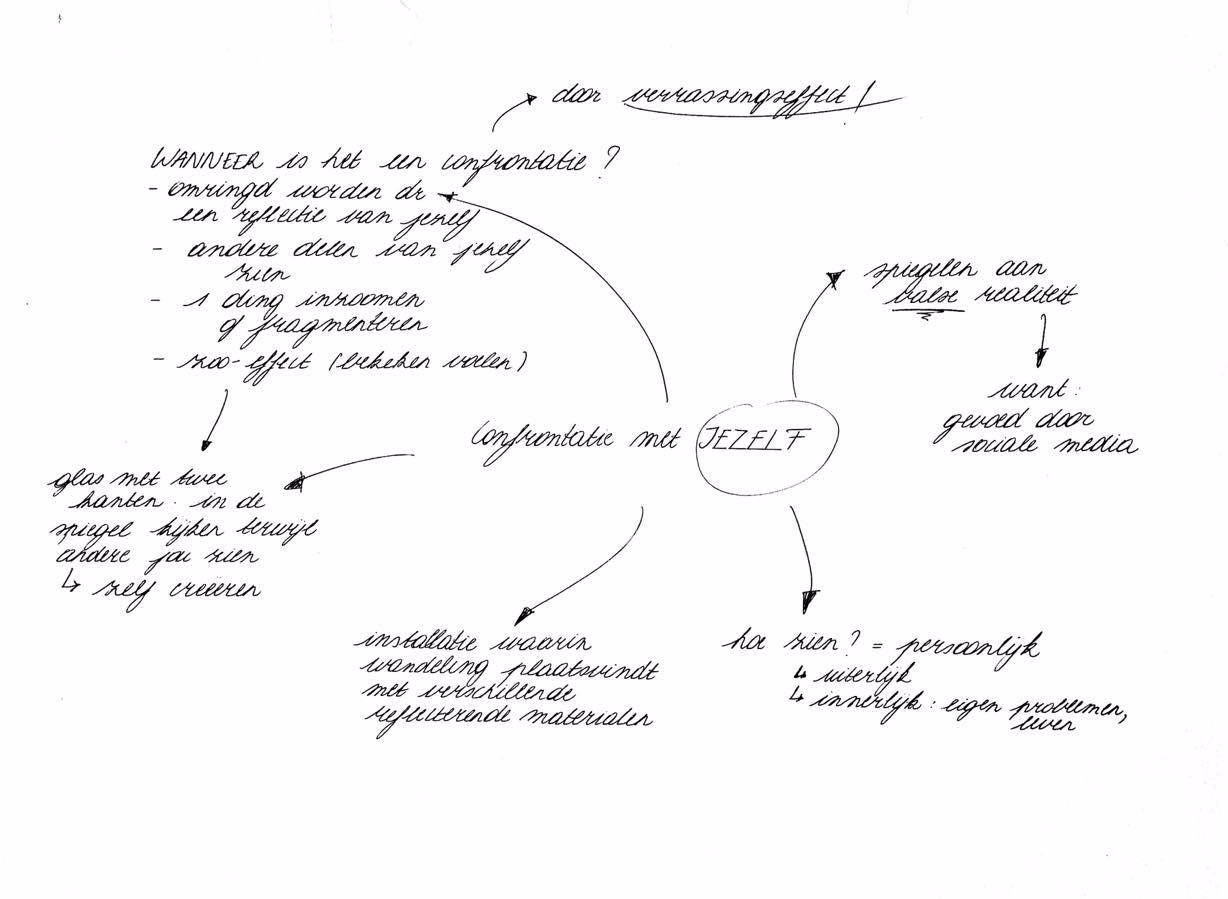 door verrassingseffect!
WANNEER is het een confrontatie?
- omringd worden dr
een reflectie van jezelf
- andere delen van jezelf
zien
- 1 ding inzoomen
of fragmenteren
- zoo-effect (bekeken voelen)
spiegelen aan
valse realiteit
want:
gevoed door
sociale media
confrontatie met JEZELF
glas met twee
kanten. in de
spiegel kijken terwijl
andere jou zien
↳ zelf creëren
installatie waarin
wandeling plaatsvindt
met verschillende
reflecterende materialen
hoe zien? = persoonlijk
↳ uiterlijk
↳ innerlijk: eigen problemen,
leven